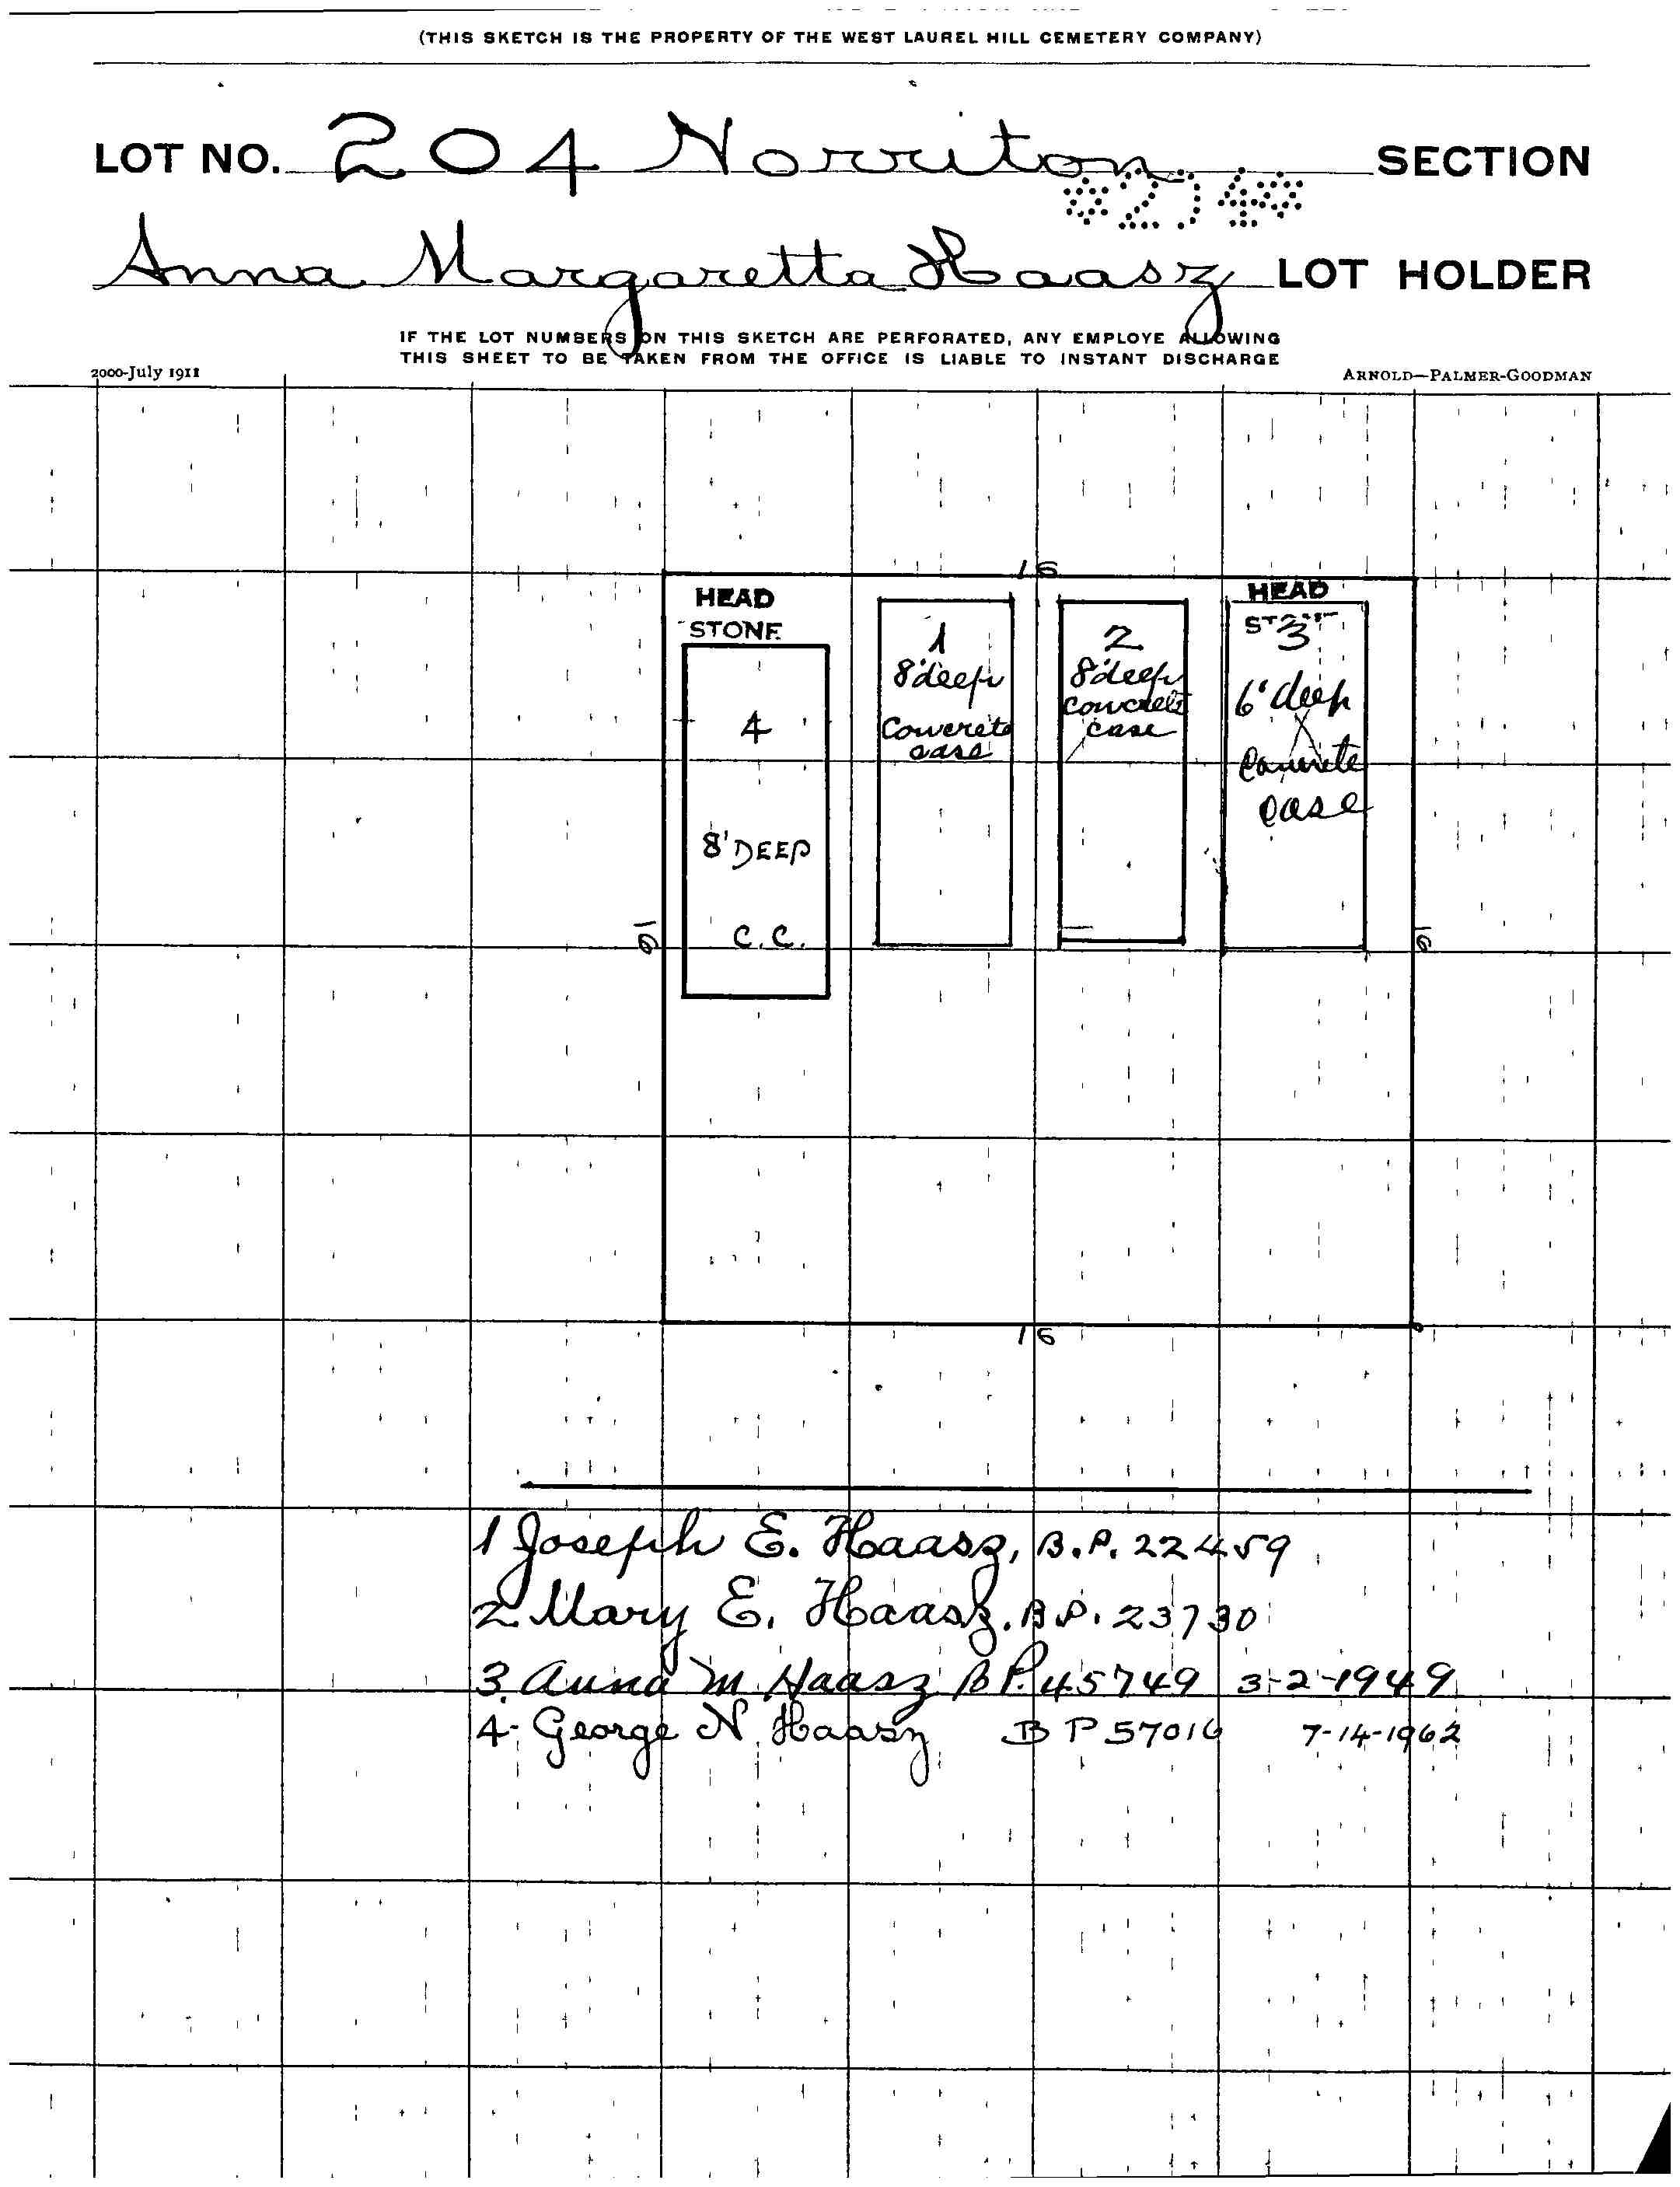 (THIS SKETCH IS THE PROPERTY OF THE WEST LAUREL HILL CEMETERY COMPANY)
LOT NO. 204 Norriton SECTION
Anna Margaretta Haasz LOT HOLDER
IF THE LOT NUMBERS ON THIS SKETCH ARE PERFORATED, ANY EMPLOYE ALLOWING
THIS SHEET TO BE TAKEN FROM THE OFFICE IS LIABLE TO INSTANT DISCHARGE
2000-July 1911
ARNOLD—PALMER-GOODMAN
16
HEAD
STONE
4
8' DEEP
C.C.
1
8' deep
Concrete
case
2
8' deep
concrete
case
HEAD
3
6' deep
Concrete
case
16
16
16
1 Joseph E. Haasz, B.P. 22459
2. Mary E. Haasz. B.P. 23730
3. Anna M Haasz B P. 45749 3-2-1949
4- George N Haasz B P 57016 7-14-1962